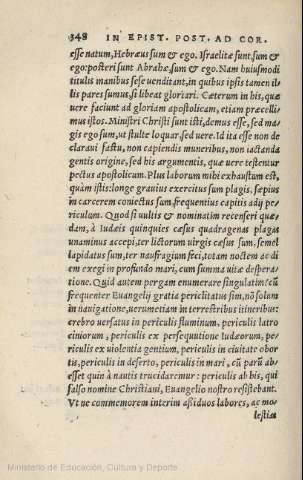 348 IN EPIST. POST. AD COR.
esse natum, Hebræus sum & ego. Israelitæ sunt, sum &
ego: posteri sunt Abrahæ, sum & ego. Nam huiusmodi
titulis manibus sese uenditant, in quibus ipsis tamen il-
lis pares sumus, si libeat gloriari. Cæterum in his, quæ
uere faciunt ad gloriam apostolicam, etiam præcelli-
mus istos. Ministri Christi sunt isti, demus esse, sed ma-
gis ego sum, ut stulte loquar, sed uere. Id ita esse non de
claraui fastu, non capiendis muneribus, non iactanda
gentis origine, sed his argumentis, quæ uere testentur
pectus apostolicum. Plus laborum mihi exhaustum est,
quàm istis: longe grauius exercitus sum plagis, sæpius
in carcerem coniectus sum, frequentius capitis adij pe-
riculum. Quod si uultis & nominatim recenseri quæ-
dam, à Iudæis quinquies cæsus quadragenas plagas
unaminus accepi, ter lictorum uirgis cæsus sum, semel
lapidatus sum, ter naufragium feci, totam noctem ac di
em exegi in profundo mari, cum summa uitæ despera-
tione. Quid autem pergam enumerare singulatim? cū
frequenter Euangelij gratia periclitatus sim, nō solum
in nauigatione, uerumetiam in terrestribus itineribus:
crebro uersatus in periculis fluminum, periculis latro
ciniorum, periculis ex persequutione Iudæorum, pe-
riculis ex uiolentia gentium, periculis in ciuitate obor
tis, periculis in deserto, periculis in mari, cū parū ab-
esset quin à nautis trucidaremur: periculis ab his, qui
falso nomine Christiani, Euangelio nostro resistebant.
Vt ne commemorem interim aßiduos labores, ac mo-
lestias
Ministerio de Educación, Cultura y Deporte